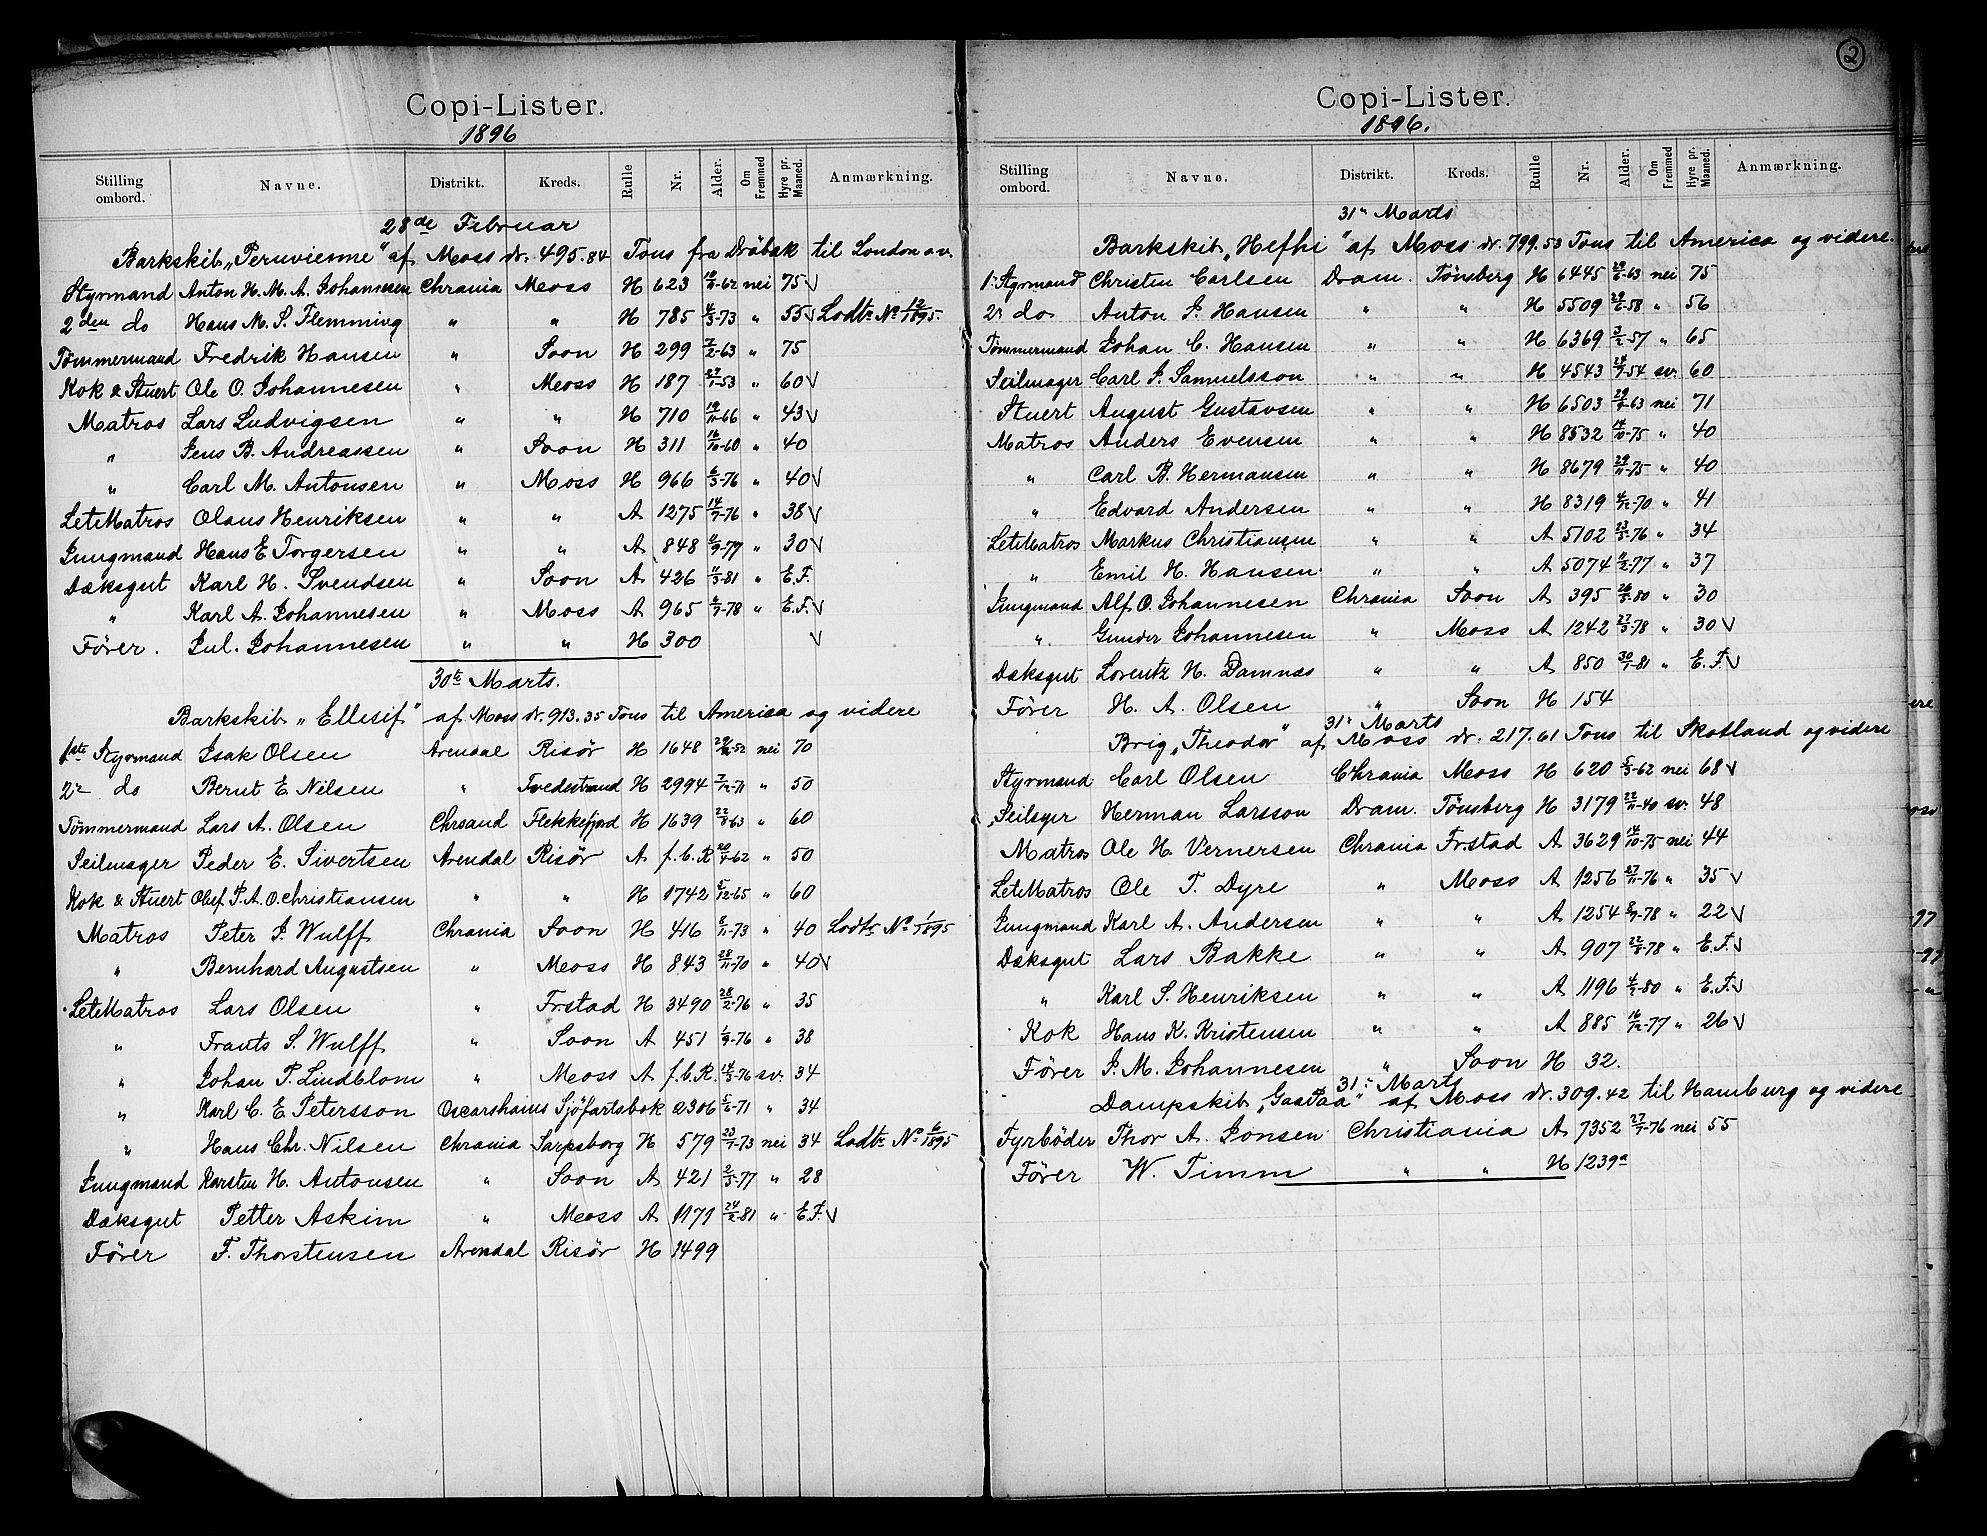 Copi-Lister.
1896
Stilling ombord. Navne. Distrikt. Kreds. Rulle Nr. Alder. Om Fremmed Hyre pr. Maaned. Anmærkning.
28de Februar
Barkskib „Peruvienne" af Moss dr. 495.84 Tons fra Dröbak til London o.v.
Styrmand Anton H. M. A. Johannesen Chrania Moss H 623 -62 nei 75 √
2den do Hans M. S. Flemming " " H 785 4/3-73 " 55 √ Lodts No 12/1895.
Tømmermand Fredrik Hansen " Soon H 299 7/2-63 " 75
Kok & Stuert Ole O. Johannesen " Moss H 187 27/1-53 " 60 √
Matros Lars Ludvigsen " " H 710 19/11-66 " 43 √
" Jens B. Andreassen " Soon H 311 16/10-60 " 40
" Carl M. Antonsen " Moss H 966 6/3-76 " 40 √
LetMatros Olaus Henriksen " " A 1275 14/7-76 " 38 √
Jungmand Hans E Torgersen " " A 848 4/9-77 " 30 √
Dæksgut Karl H. Svendsen " Soon A 426 11/3-81 " E.F.
" Karl A. Johannesen " Moss A 965 6/7-78 " E.F. √
Förer. Jul. Johannesen " " H 300 √
30te Marts.
Barkskib „Ellesif" af Moss dr. 913.35 Tons til America og videre
1ste Styrmand Isak Olsen Arendal Risör H 1648 -52 nei 70
2n do Bernt E. Nilsen " Tvedestrand H 2994 7/12-71 " 50
Tömmermand Lars A. Olsen Chrsand Flekkefjord H 1639 22/8-63 " 60
Seilmager Peder E. Sivertsen Arendal Risör A f.b.R. 20/4-62 " 50
Kok & Stuert Oluf P. A. O. Christiansen " " H 1742 5/12-65 " 60
Matros Peter J. Wulff Chrania Soon H 416 8/11-73 " 40 Lodts No 1/1895
" Bernhard Augustsen " Moss H 843 28/11-70 " 40 √
LetMatros Lars Olsen " Frstad H 3490 28/2-76 " 35
" Frants S. Wulff " Soon A 451 1/9-76 " 38
" Johan T. Lindblom " Moss A f.b.R. 14/3-76 sv. 34
" Karl C. E Petersson Oscarshamns Sjöfartsbok 2306 5/6-71 " 34
" Hans Chr. Nilsen Chrania Sarpsborg H 579 23/1-73 nei 34 Lodts No 6/1895
Jungmand Karsten H. Antonsen " Soon A 421 2/3-77 " 28
Dæksgut Petter Askim " Moss A 1171 24/2-81 " E.F. √
Förer F. Thorstensen Arendal Risör H 1499
2
Copi-Lister.
1896.
Stilling ombord. Navne. Distrikt. Kreds. Rulle Nr. Alder. Om Fremmed Hyre pr. Maaned. Anmærkning.
31n Marts
Barkskib „Hefhi" af Moss dr. 799.53 Tons til America og videre.
1n Styrmand Christen Carlsen Dram. Tönsberg H 6445 29/6-63 nei 75
2n do Anton J. Hansen " " H 5509 29/6-58 " 56
Tömmermand Johan C. Hansen " " H 6369 3/2-57 " 65
Seilmager Carl J. Samuelsson " " H 4543 24/9-54 sv. 60
Stuert August Gustavsen " " H 6503 -63 nei 71
Matros Anders Evensen " " H 8532 14/10-75 " 40
" Carl B. Hermansen " " H 8679 29/11-75 " 40
" Edvard Andersen " " H 8319 4/12-70 " 41
LetMatros Markus Christiansen " " A 5102 23/3-76 " 34
" Emil H. Hansen " " A 5074 -77 " 37
Jungmand Alf O. Johannesen Chrania Soon A 395 26/5-80 " 30
" Gunder Johannesen " Moss A 1242 27/3-78 " 30 √
Dæksgut Lorentz H. Damnæs " " A 850 30/1-81 " E.F. √
Förer H. A. Olsen " Soon H 154
31n Marts
Brig „Theodor" af Moss dr. 217.61 Tons til Skotland og videre
Styrmand Carl Olsen Chrania Moss H 620 5/3-62 nei 68 √
Seilsyer Herman Larsson Dram. Tönsberg H 3179 22/11-40 sv. 48
Matros Ole H. Vernersen Chrania Frstad A 3629 14/10-75 nei 44
LetMatros Ole T. Dyre " Moss A 1256 27/11-76 " 35 √
Jungmand Karl A. Andersen " " A 1254 8/9-78 " 22 √
Dæksgut Lars Bakke " " A 907 22/8-78 " E.F. √
" Karl S. Henriksen " " A 1196 4/2-80 " E.F. √
Kok Hans K. Kristensen " " A 885 16/12-77 " 26 √
Förer J. M. Johannesen " Soon H 32.
31n Marts
Dampskib „Gaapaa" af Moss dr. 309.42 til Hamburg og videre
Fyrböder Thor A. Jonsen Christiania A 7352 27/7-76 nei 55
Förer W. Timm " " H 1239a